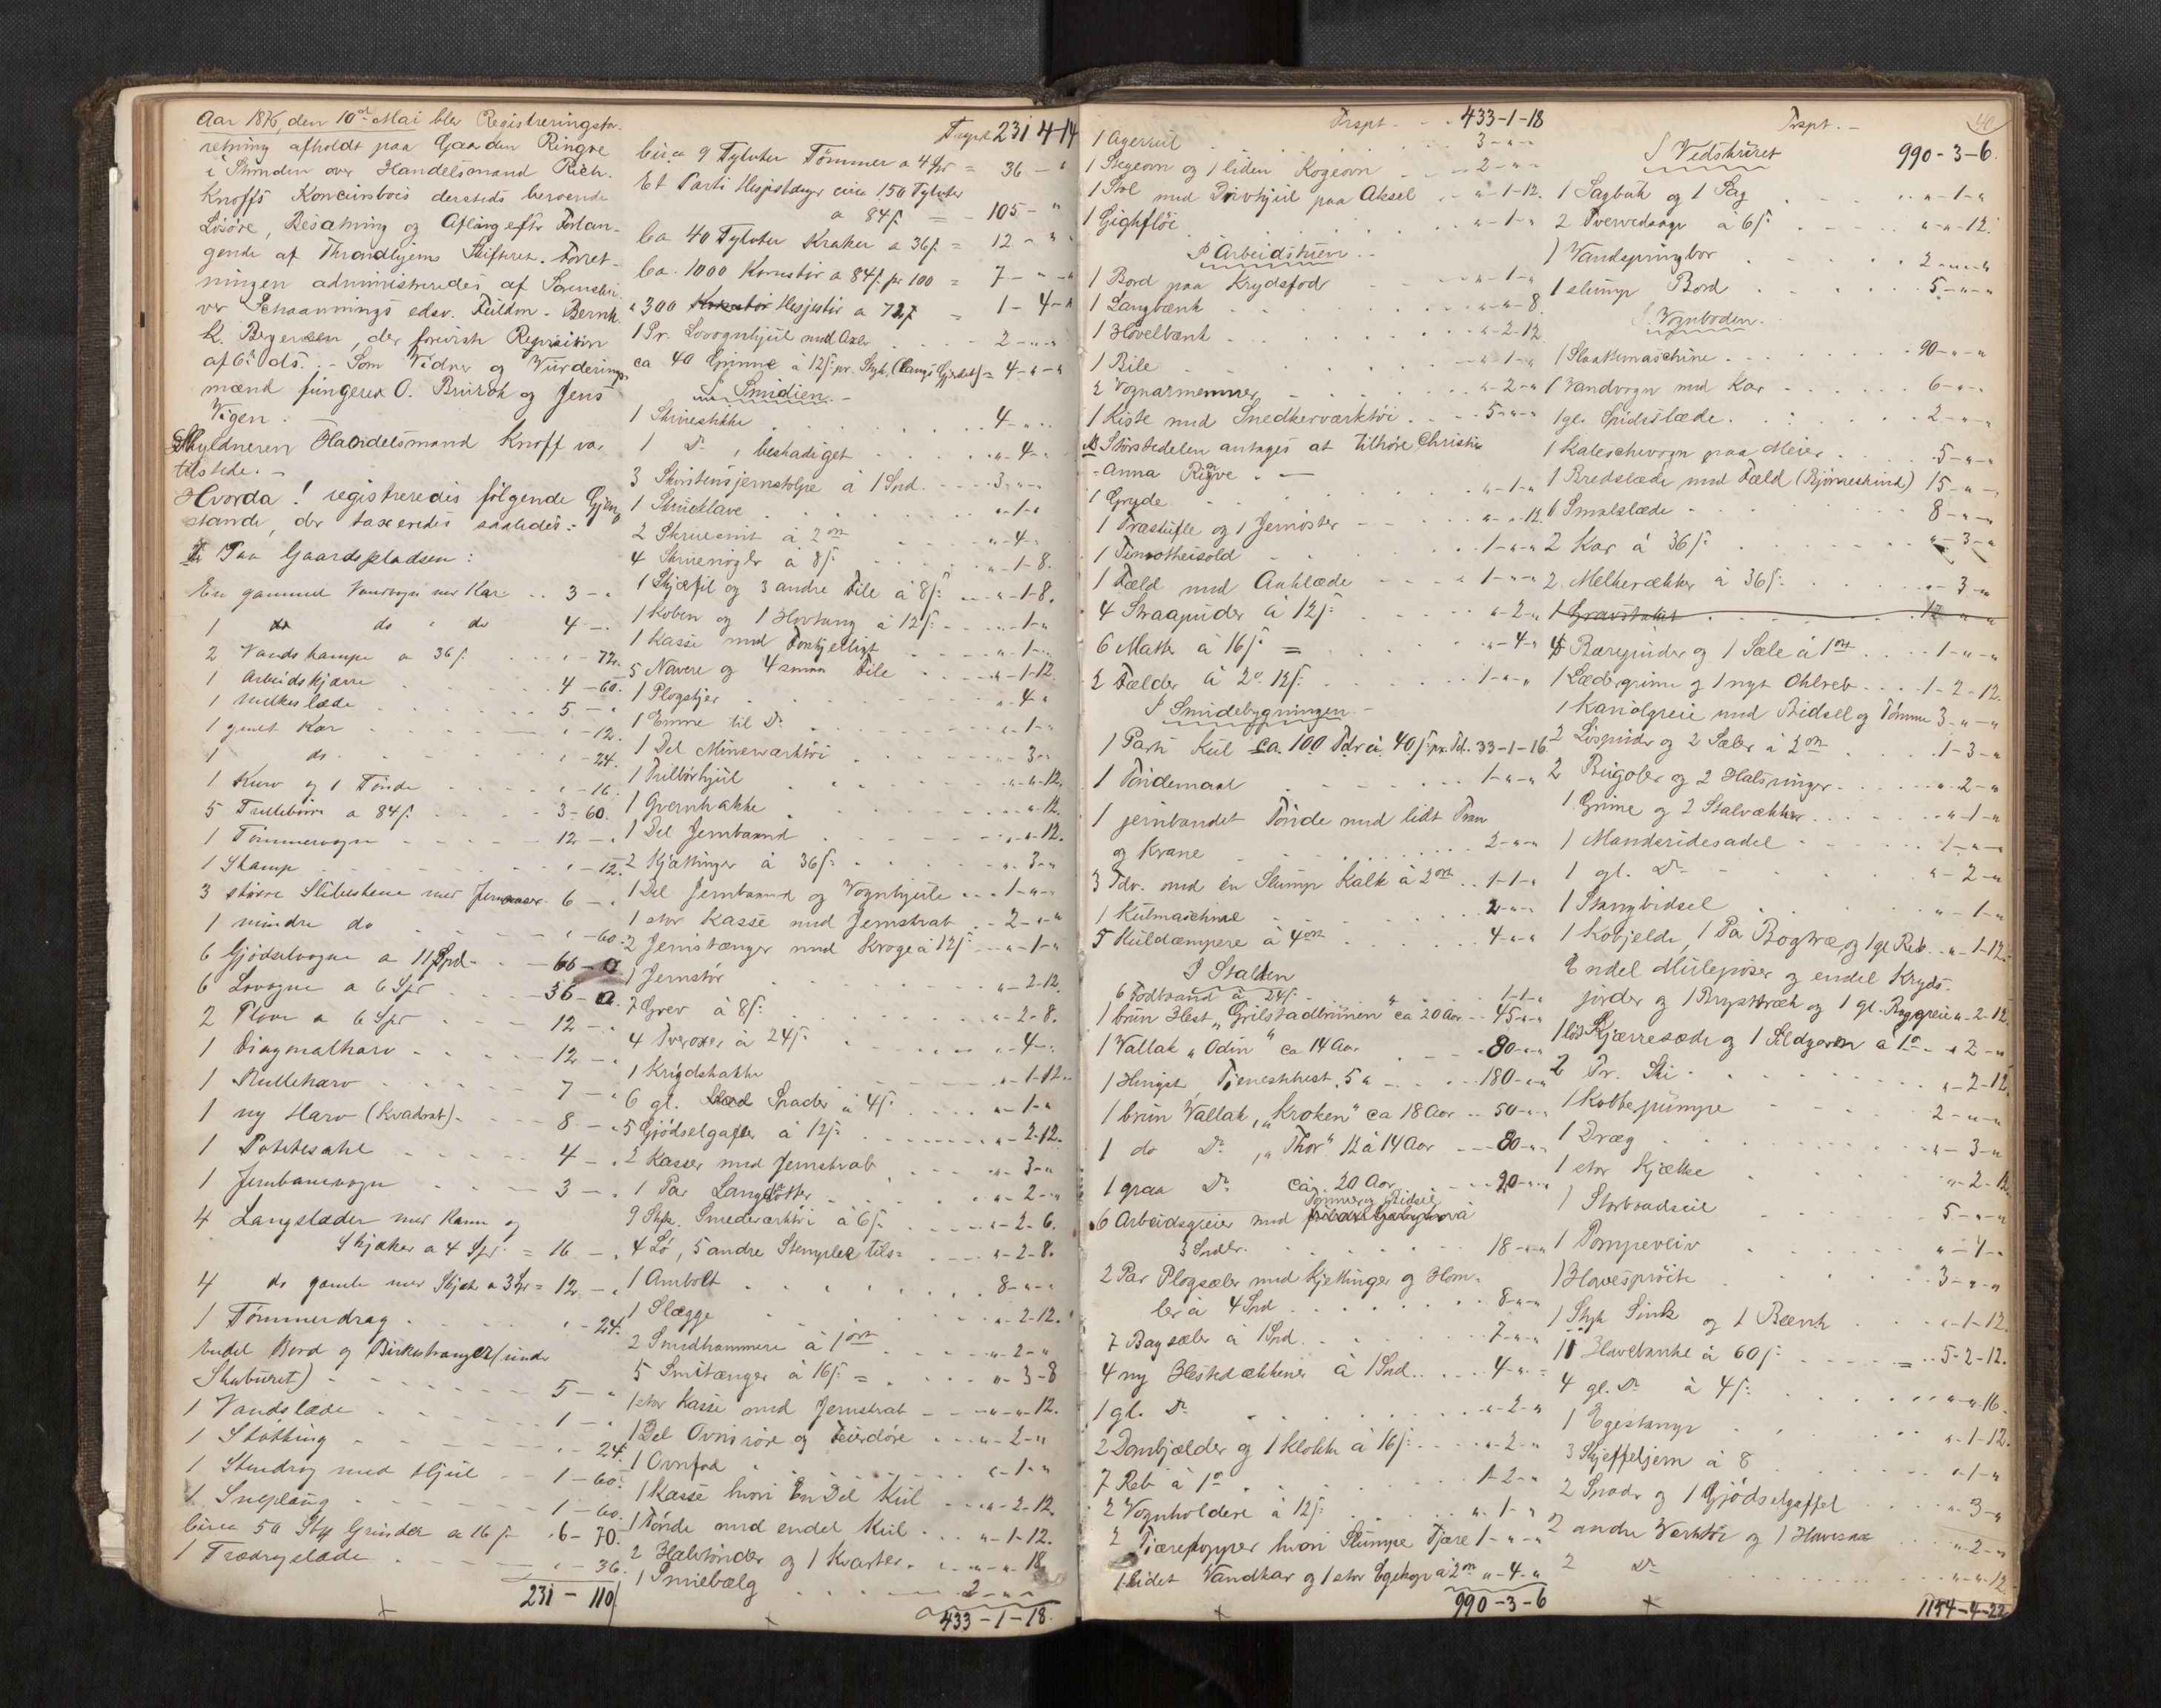 Aar 1875, den 10de Mai blev Registreringsfor-
retning afholdt paa Gaarden Ringve
i Strinden over Handelsmand Rich.
Knoffs Koncursbois dersteds beroende
Lösöre, Besætning og Afling efter Forlan-
gende af Throndhjems Skifteret. Forret-
ningen administreredes af Sorenskri-
ver Schaannings edsv. Fuldm. Bernh.
K. Bergersen, der foreviste Requisition
af 6te ds. - Som Vidner og Vurderings-
mænd fungerer O. Buirch og Jens
Vigen.
Skyldneren Handelsmand Knoff var
tilstede. -
Hvorda! registreredes fölgende Gjen-
stande, der taxeredes saaledes:
Paa Gaardspladsen:
En gammel Vandvogn med Kar .. 3 - "
1 do do " do 4 - "
2 Vandskampe a 36 s. " - 72.
1 Arbeidskjærre 4 - 60.
1 Melkeslæde 5 - "
1 gmlt Kar " - 12.
1 do. " - 24.
1 Kurv og 1 Tönde " - 16.
5 Trillebörer a 84 s. 3 - 60.
1 Tömmervogn 12 - "
1 Stamp " - 12.
3 större Slibestene med Jernaxer 6 - "
1 mindre do " - 60.
6 Gjödselvogne a 11 Spd. 66 - 0
6 Lovogne a 6 Spd 36 - 0.
2 Plove a 6 Spd 12 - "
1 Diagonalharv 12 - "
1 Rulleharv 7 - "
1 ny Harv (Kvadrat) 8 - "
1 Potetesahl 4 - "
1 Jernbanevogn 3 - "
4 Langslæder med Karm og
Skjæker a 4 Spd = 16 - "
4 do gamle med Skjæk a 3 Spd = 12 - "
1 Tömmerdrag " - 24.
Endel Bord og Birkestranger (under
Stabüret) 5 - "
1 Vandslæde 1 - "
1 Stötting " - 24.
1 Stendrog med Hjul 1 - 60.
1 Sneploug 1 - 60.
Circa 50 Stk Grinder a 16 s - 6 - 70.
1 Trædryslæde " - 36.
231 - 110
Trspt 231 4-14
Circa 9 Tylvter Tömmer a 4 Spd = 36 - "
Et Parti Hesjestænger circa 150 Tylvter
a 84 s. = 105 - "
Ca 40 Tylvter Kraker a 36 s. = 12 - " "
Ca. 1000 Kornstör a 84 s. pr 100 = 7 - " - "
" 300 Hesjestör a 72 s = 1 - 4 - "
1 Pr. Lovognhjul med Axler 2 - " - "
ca 40 Grinne à 12 s. pr. Styk, (langs Gjerdet) = 4 - " - "
I Smidien. -
1 Skruestikke 4 - " - "
1 Do, beskadiget " - 4 - "
3 Skorstensjernstolpe à 1 Spd. 3 - " - "
1 Skrueklave " - 1 - "
2 Skruesnit à 2 ort " - 4 - "
4 Skruenögler à 8 s. " - 1 - 8.
1 Skjæfil og 3 andre File à 8 s. " - 1 - 8.
1 Koben og 1 Hovtang à 12 s. " - 1 - "
1 Kasse med Forskjelligt " - 1 - "
5 Navere og 4 smaa File " - 1 - 12.
1 Plogskjer " - 4 - "
1 Emne til Do " - 1 - "
1 Del Mineværktöi " - 3 - "
1 Trillbörhjul " - " - 12.
1 Qvernhakke " - " - 12.
1 Del Jernbaand " - " - 12.
2 Kjættinger à 36 s. " - 3 - "
1 Del Jernbaand og Vognhjule 1 - " - "
1 stor Kasse med Jernskrab 2 - " - "
2 Jernstænger med Kroge à 12 s. " - 1 - "
1 Jernstör " - 2 - 12.
7 Grev à 8 s. " - 2 - 8.
4 Tveroxer à 24 s. " - 4 - "
1 Krydshakke " - 1 - 12.
6 gl. Spader à 4 s. " - 1 - "
5 Gjödselgafler à 12 s. " - 2 - 12.
2 Kasser med Jernskrab " - 3 - "
1 Par Langstötter " - 2 - "
9 Styk. Smedeværktöi à 6 s. " - 2 - 6.
4 Lö, 5 andre Stempler tils= " - 2 - 8.
1 Ambolt 8 - " - "
1 Slægge " - 2 - 12.
2 Smedhammere à 1 ort " - 2 - "
5 Smitænger à 16 s. = " - 3 - 8
1 stor Kasse med Jernskrab " - " - 12.
1 Del Ovnsrör og Feierdöre " - 2 - "
1 Ovnfod " - 1 - "
1 Kasse hvori En Del Kul " - 2 - 12
1 Tönde med endel Kul " - 1 - 12.
2 Halvtönder og 1 Kvarter " - " - 18.
1 Smiebælg 2 - " - "
433 - 1 - 18.
Trspt. 433-1-18
1 Agerrul 3 - " - "
1 Stegeovn og 1 liden Kogeovn 2 - " - "
1 Stol med Drivhjul paa Aksel " - 1 - 12.
1 Gighflöi " - 1 - "
I Arbeidstuen. -
1 Bord paa Krydsfod " - 1 - "
1 Langbænk " - " - 8.
1 Hövelbænk " - 2 - 12
1 Bile " - 1 - "
2 Vognarmenner " - 2 - "
1 Kiste med Snedkerværktöi 5 - " - "
NB Störstedelen antages at tilhöre Christin
- Anna Ringve. -
1 Gryde " - 1 - "
1 Træskufle og 1 Jernöster " - " - 12.
1 Timotheisold 1 - " - "
1 Fæld med Aaklæde 1 - " - "
4 Straapuder à 12 s. " - 2 - "
6 Matter à 16 s. = " - 4 - "
2 Fælder à 2 o. 12 s. 1 - " - "
I Smidebygningen. -
1 Parti Kul ca. 100 Tdr à 40 s. pr. Td. 33 - 1 - 16
1 Töndemaal 1 - " - "
1 jernbandet Tönde med lidt Tran
og Krane 2 - " - "
3 Tdr. med én Slump Kalk à 2 ort 1 - 1 - "
1 Kulmaschine 2 - " - "
5 Kuldæmpere à 4 ort 4 - " - "
I Stalden
6 Fodbaand à 24 s. 1 - 1 - "
1 brun Hest "Grilstadbrunen" ca 20 Aar 45 - " - "
1 Vallak "Odin" ca 14 Aar 80 - " - "
1 Hingst, Tjenesthest, 5 a 180 - " - "
1 brun Vallak, "Kroken" ca 18 Aar 50 - " - "
1 do Do, "Thor" 12 à 14 Aar 80 - " - "
1 graa Do ca. 20 Aar 20 - " - "
6 Arbeidsgreier med Tömmer og Bidsel à
3 Spdlr. 18 - " - "
2 Par Plogsæler med Kjettinger og Hom-
ler à 4 Spd 8 - " - "
7 Bagsæler à 1 Spd. 7 - " - "
4 ny Hestedækkener à 1 Spd. 4 - " -
1 gl. Do " - 2 - "
2 Dombjælder og 1 Klokke à 16 s. " - 2 - "
7 Reb à 1 o 1 - 2 - "
2 Vognholdere à 12 s. " - 1 - "
2 Tjærepopper hvori Slumpe Tjære 1 - " - "
1 lidet Vandkar og 1 stor Egekop à 2 ort " - 4 - "
990 - 3 - 6
Trspt. - 990 - 3 - 6.
I Vedskuret
1 Sagbuk og 1 Sag " - 1 - "
2 Tvervedsage à 6 s. " - " - 12.
1 Vandspringbor 2 - " - "
1 slump Bord 5 - " - "
I Vognboden. -
1 Slaattemaschine 90 - " - "
1 Vandvogn med Kar 6 - " - "
1 gl. Spidsslæde 2 - " - "
1 Kaleschevogn paa Meier 5 - " - "
1 Bredslæde med Fæld (Björneskind) 15 - " - "
1 Smalslæde 8 - " - "
2 Kar à 36 s. " - 3 - "
2 Melkerækker à 36 s. " - 3 - "
4 Bærepuder og 1 Sæle à 1 ort 1 - " - "
1 Lædergrime og 1 nyt Ohlreb 1 - 2 - 12.
1 Kariolgreie med Bidsell og Tömme 3 - " - "
2 Löspuder og 2 Sæler à 2 ort 1 - 3 - "
2 Bugoler og 2 Halsringer " - 2 - "
1 Grime og 2 Stalrækker " - 1 - "
1 Mandsridesadel 1 - " - "
1 gl. Do " - 2 - "
1 Stangbidsel " - 1 - "
1 Kobjelde, 1 Pa Bogtræ og 1 gl Reb " - 1 - 12.
Endel Muleposer og endel Kryds-
jorder og 1 Brystræk og 1 gl. Raggreie " - 2 - 12.
1 lös Kjærresæde og 1 Sildgarn à 1 o " - 2 - "
2 Pr. Ski " - 2 - 12
1 Kobberpumpe 2 - " - "
1 Dræg " - 3 - "
1 stor Kjælke " - 2 - 12.
1 Storbaadseil 5 - " - "
1 Pompeveiv " - 4 - "
1 Havespröite 3 - " - "
1 Styk Sink og 1 Bænk " - 1 - 12.
11 Havebænke à 60 s. = 5 - 2 - 12.
4 gl. Do à 4 s. " - " - 16.
1 Egestamp " - 1 - 12.
3 Skjeffeljern à 8 " - 1 - "
2 Spader og 1 Gjödselgaffel " - 3 - "
2 andre Værktöi og 1 Havesax " - 2 - "
2 Do " - " - 12.
1154 - 4 - 22